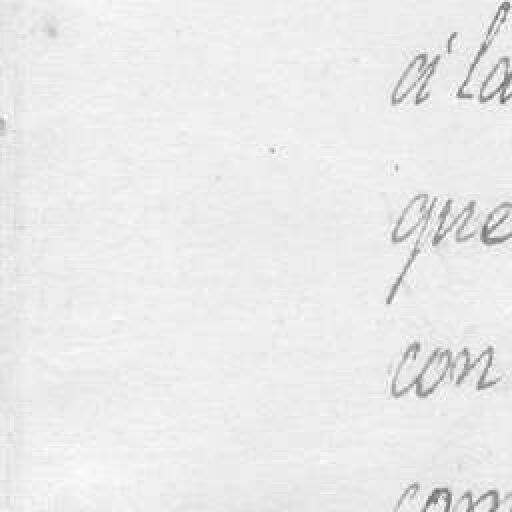 á la
que
con
com